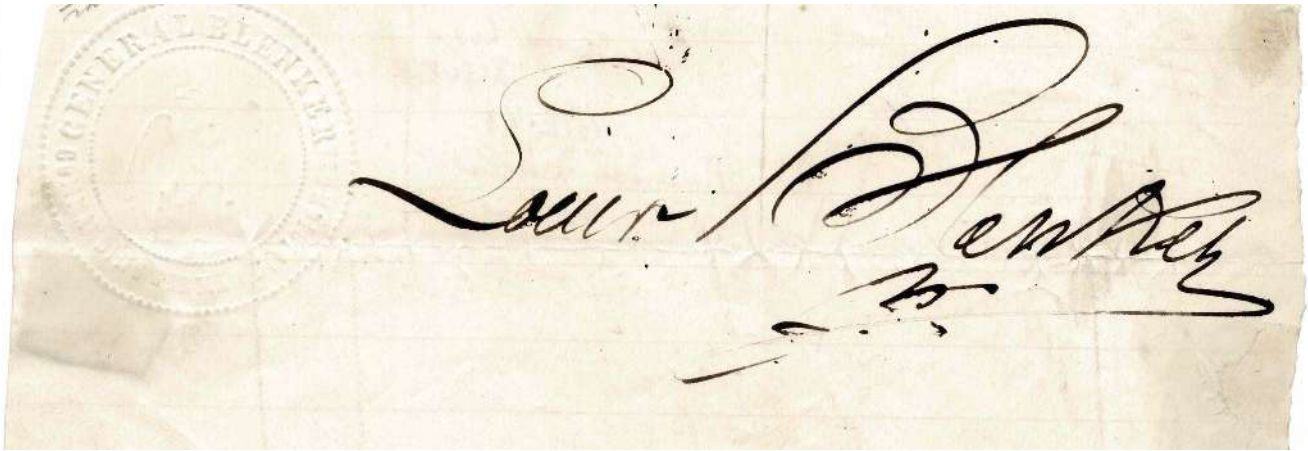 GENERAL BLENKER
Louis Blenker